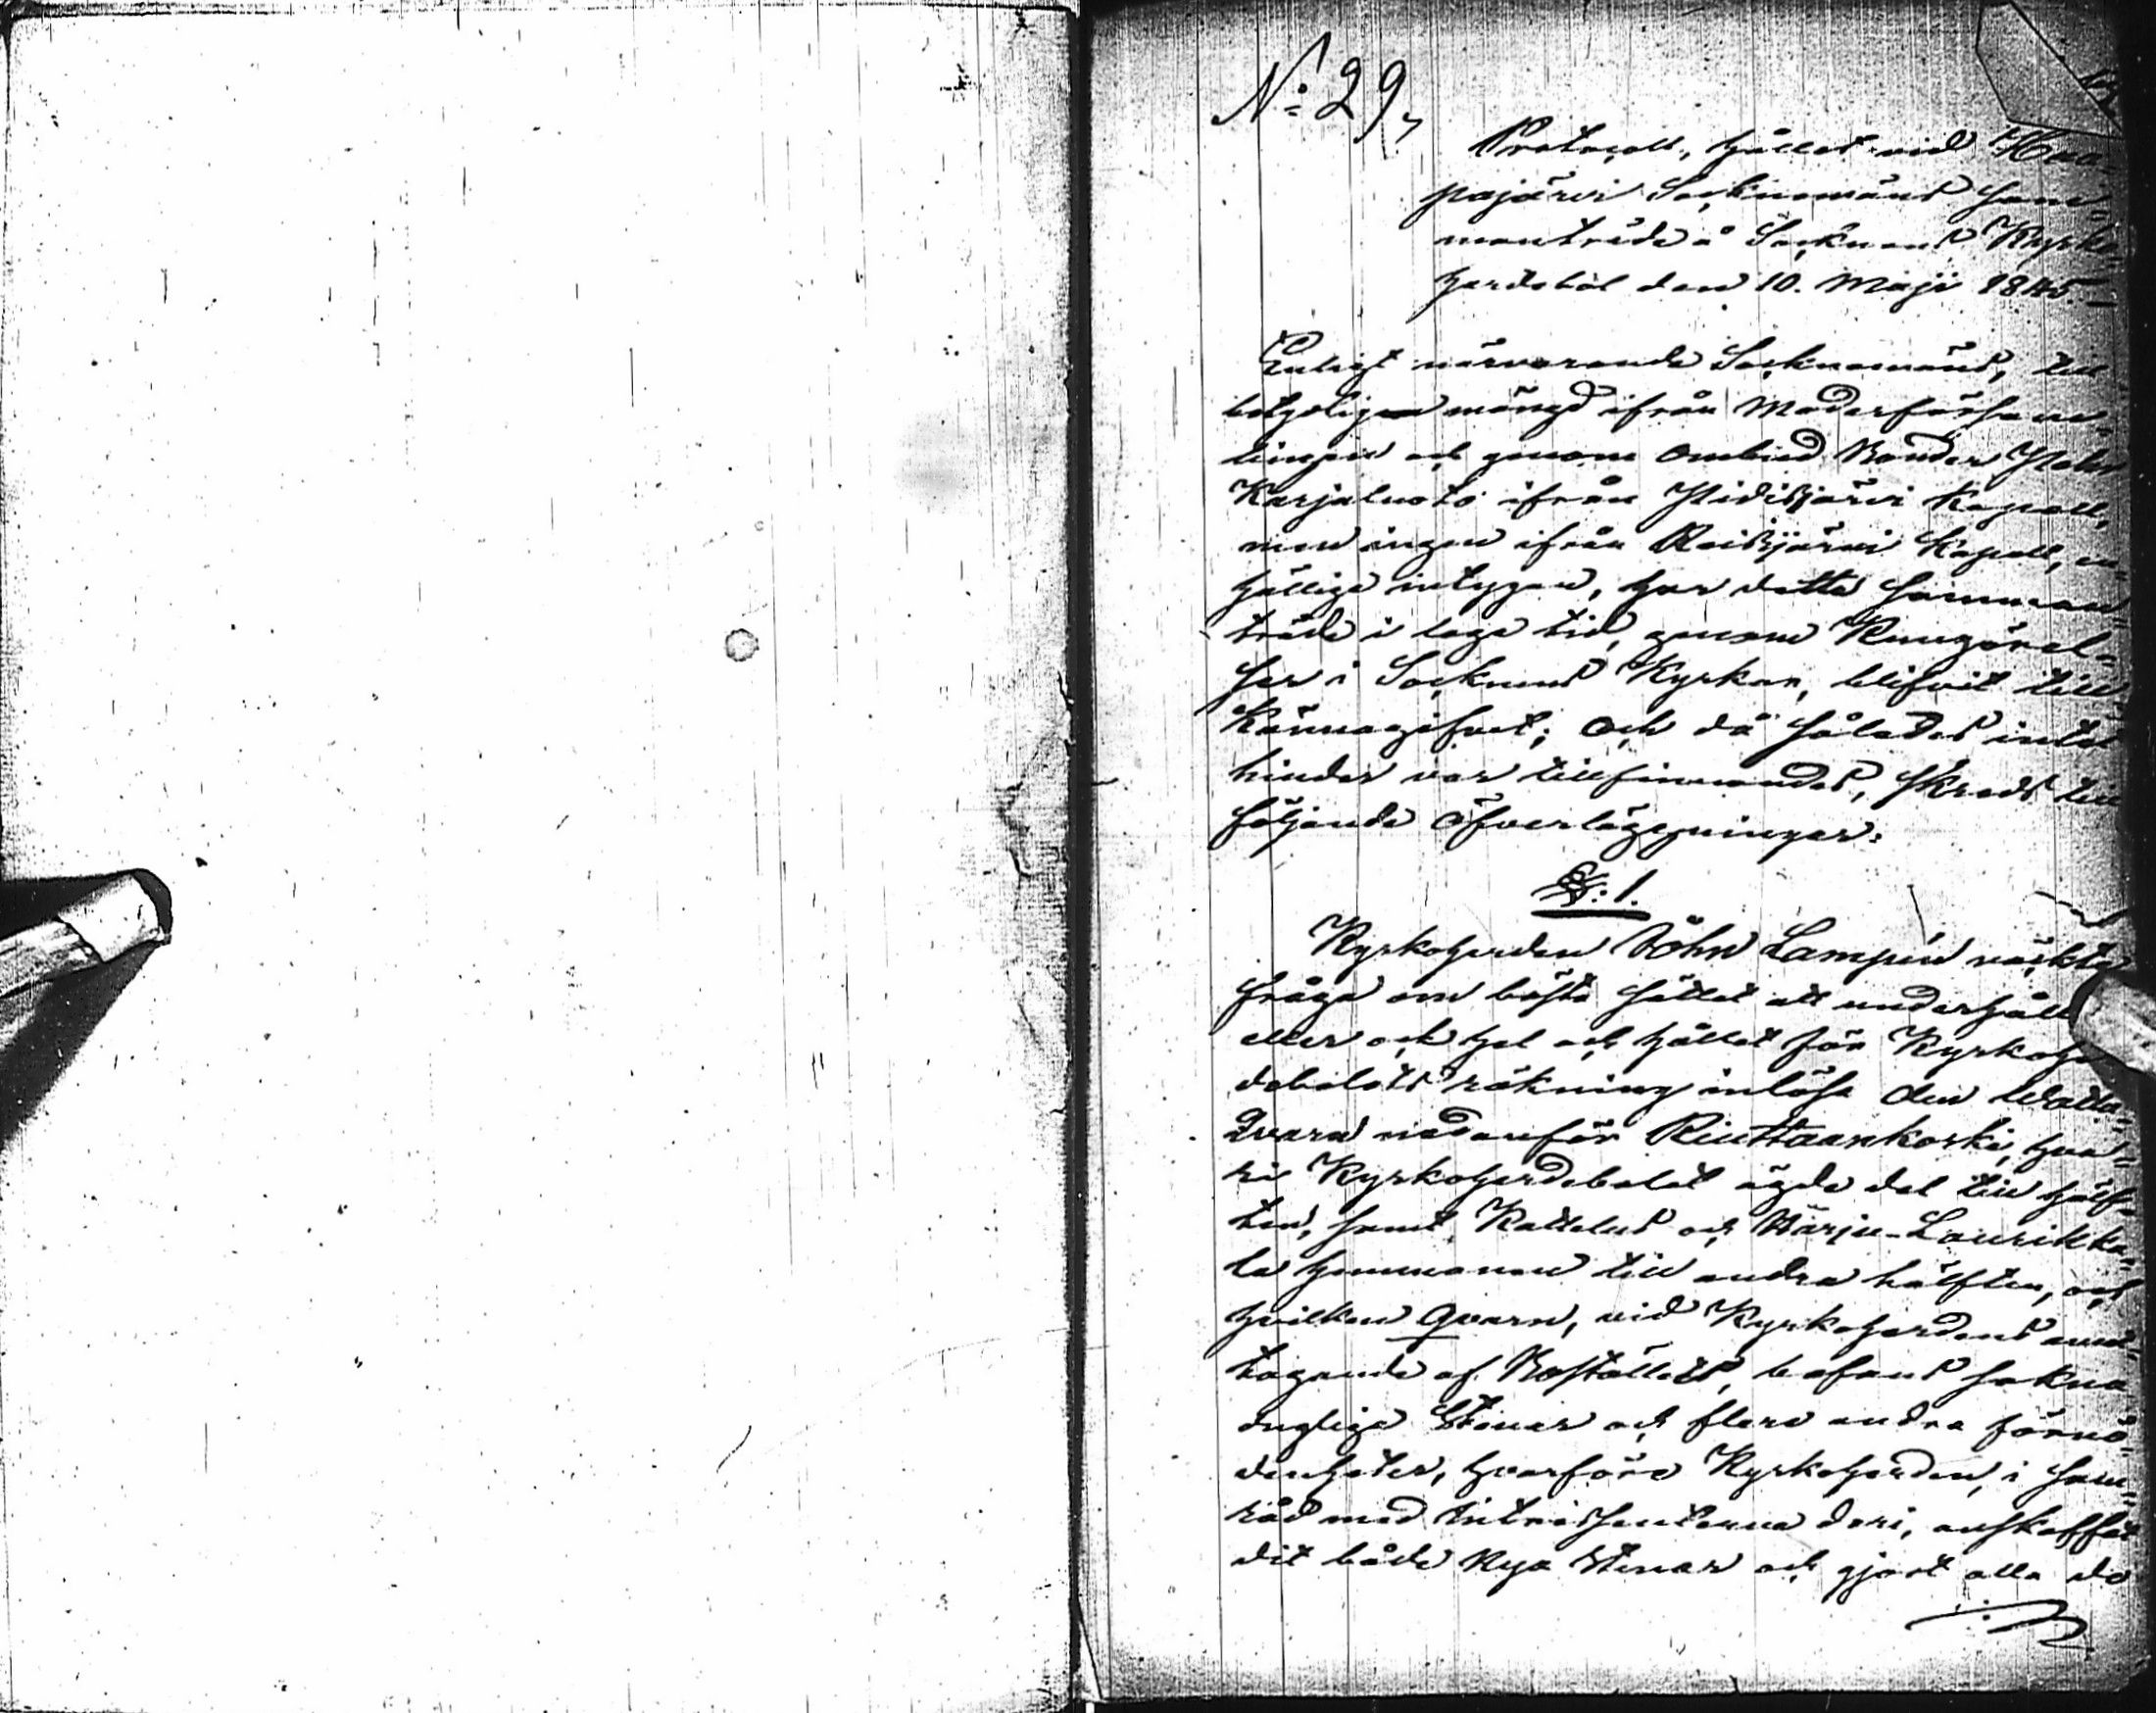 N:o 29,
Protocoll, hållet vid Haa-
pajärvi Socknemäns sam-
manträde å Socknens Kyrko-
herdeböl den 10. Maji 1845.
Enligt närvarande Socknemäns, till
betydlig mängd ifrån Moderförsam-
lingen och genom ombud Bonden
Karjaluoto ifrån Pidisjärvi Kapell,
men ingen ifrån Reisjärvi Kapell, en-
hällige intygan, har detta samman
träde i laga tid, genom Kungörel-
ser i Socknens Kyrkor, blifvit till
kännagifvet; Och då således intet
hinder var tillfinnandes, skreds till
följande öfverläggningar:
§: 1.
Kyrkoherden Joh: Lampén väckte
fråga om bästa sättet att underhålla
eller och hel och hållet för Kyrkoher
debolets räkning inlösa den Walta-
Qvarn nedanför Riuttaankoski, hva-
ri Kyrkoherdebolet ägde del till hälf-
ten, samt Kattelus och Närju-Laurikka-
la hemmanen till andra hälften, och
hvilken Qvarn, vid Kyrkoherdens emot-
tagande af Bostället, befans sakna
dugliga Stenar och flere andra förnö-
denheter, hvarföre Kyrkoherden, i sam-
råd med Intressenterna deri, anskaffat
dit både Nya Stenar och gjort alla de